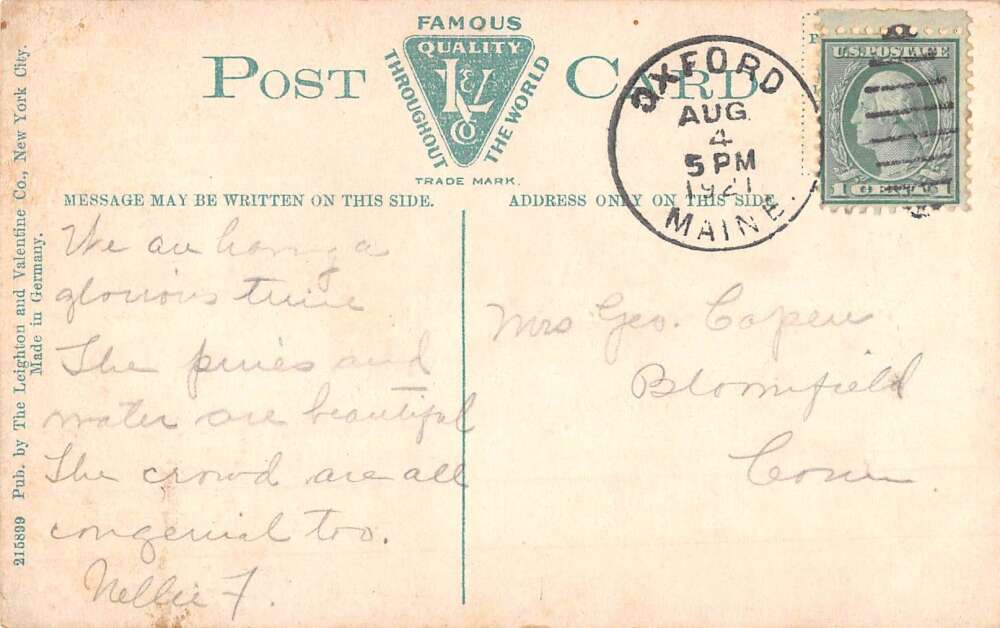 FAMOUS
QUALITY
L&V
Co
THROUGHOUT THE WORLD
TRADE MARK.
POST CARD
MESSAGE MAY BE WRITTEN ON THIS SIDE.
ADDRESS ONLY ON THIS SIDE.
OXFORD
AUG
4
5 PM
1921
MAINE.
U.S. POSTAGE
1 CENT 1
We are having a
glorious time
The pines and
water are beautiful
The crowd are all
congenial too.
Nellie F.
Mrs Geo. Capen
Bloomfield
Conn.
215899 Pub. by The Leighton and Valentine Co., New York City.
Made in Germany.